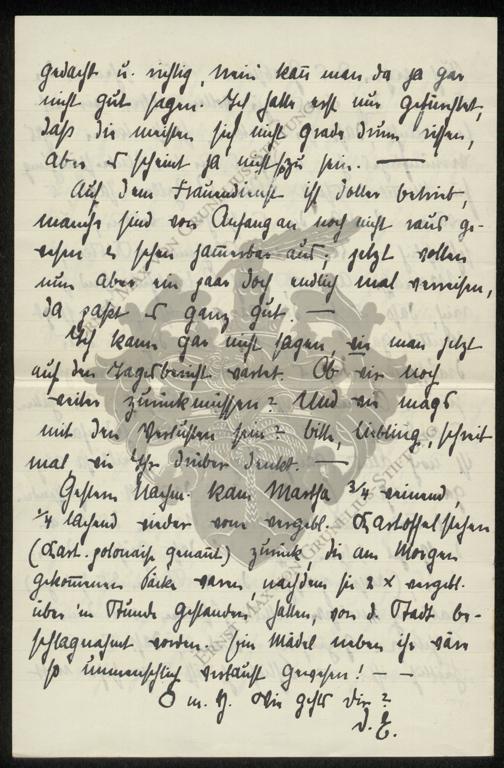 gedacht u. richtig, nein kann man da ja gar
nicht gut sagen. Ich hatte erst nur gefürchtet,
daß die meisten sich nicht grade drum rissen,
aber es scheint ja nicht so zu sein. —
Auf dem Frauendienst ist doller betrieb,
manche sind von Anfang an noch nicht raus ge-
wesen u. sehen jammerbar aus; jetzt wollen
nun aber ein paar doch endlich mal verreisen,
da paßt es ganz gut. —
Ich kann gar nicht sagen, wie man jetzt
auf den Tagesbericht wartet. Ob wir noch
weiter zurückmüssen? Und wie mags
mit den Verlusten sein? bitte, Liebling, schreib
mal, wie Ihr drüber denkt. —
Gestern Nachm. kam Martha 3/4 weinend,
1/4 lachend wieder vom vergebl. Kartoffelstehen
(Kart. polonaise genannt) zurück, die am Morgen
gekommenen Säcke waren, nachdem sie 2 x vergebl.
über 'ne Stunde gestanden hatten, von d. Stadt be-
schlagnahmt worden. Ein Mädel neben ihr wäre
so unmenschlich verlaust gewesen! — —
O m. H. Wie gehts Dir?
D. E.
ERNST MAX VON GRUNELIUS-STIFTUNG
ERNST MAX VON GRUNELIUS-STIFTUNG